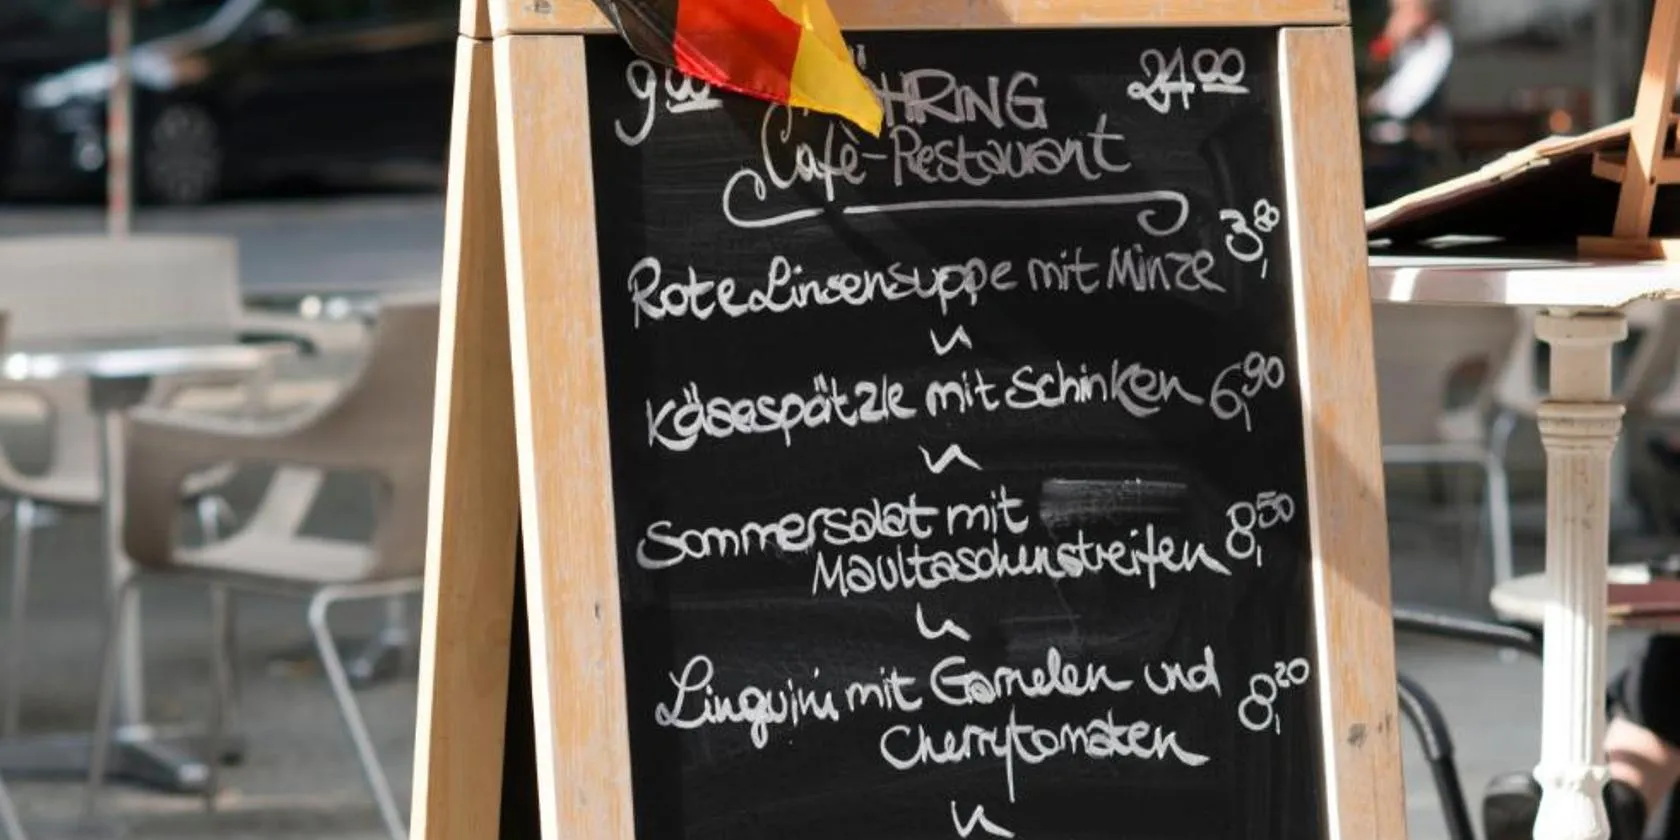 9 00 HRING 24 00
Cafè-Restaurant
Rote Linsensuppe mit Minze 3,80
Käsespätzle mit Schinken 6,90
Sommersalat mit
Maultaschenstreifen 8,50
Linguini mit Garnelen und 8,20
Cherrytomaten